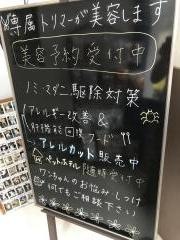 専属トリマーが美容します
美容予約受付中
ノミ・マダニ駆除対策
アレルギー改善&
フード
アレルカット販売中
ペットホテル随時受付中
ワンちゃんのお悩み しつけ
何でもご相談下さい